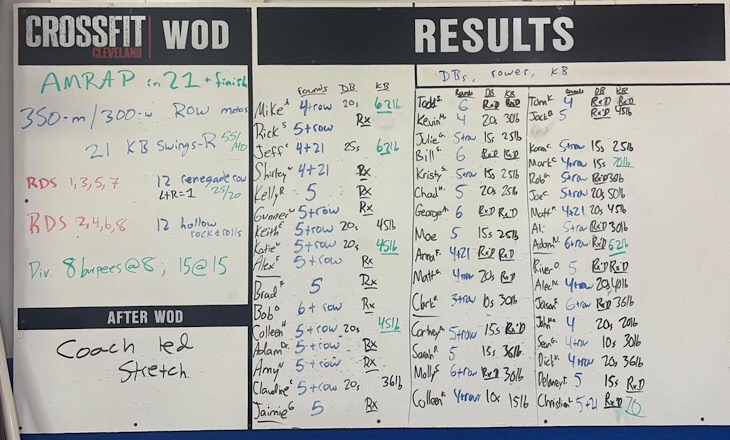 CROSSFIT CLEVELAND WOD
AMRAP in 21 + finish
350-m/300-w Row meters
21 KB Swings-R 55/40
RDS 1,3,5,7 12 renegade row
L+R=1 25/20
RDS 2,4,6,8 12 hollow
rock+rolls
Div. 8 burpees@8, 15@15
AFTER WOD
Coach led
Stretch
RESULTS
DBs, rower, KB
rounds DB KB
Mike 4+row 20s 62lb
Rick S 5+row Rx
Jeff 4+21 25s 62lb
Shirley 4+21 Rx
Kelly R 5 Rx
Gunner 5+row Rx
Keith 5+row 20s 45lb
Katie 5+row 20s 45lb
Alex 5+row Rx
Brad 5 Rx
Bob 6+row Rx
Colleen 5+row 20s 45lb
Adam 5+row Rx
Amy 5+row Rx
Claudine 5+row 20s 36lb
Jaimie G 5 Rx
Rounds DB KB
Todd 6 RxD RxD
Kevin 4 20s 30lb
Julie 5+row 15s 25lb
Bill 6 RxD RxD
Krist 5+row 15s 25lb
Chad 5 20s 25lb
George 6 RxD RxD
Moe 5 15s 25lb
Anna 4+21 RxD RxD
Matt 4+row 20s RxD
3+row 10s 30lb
5+row 15s RxD
Sarah 5 15s 36lb
Molly 6+row RxD 30lb
Colleen 4+row 10x 15lb
Rounds DB KB
Tom 4 RxD RxD
Jack 5 RxD 45lb
5+row 15s 25lb
Mark 4+row 15s 20lb
Rob 5+row RxD 30lb
Joe 5+row 20s 50lb
Matt 4+21 20s 45lb
Al 5+row RxD 30lb
Adam 6+row RxD 62lb
River 5 RxD RxD
Alec 4+row 20s 40lb
Jason 6+row RxD 36lb
John 4 20s 20lb
Sean 4+row 10s 30lb
Dick 4+row 20s 36lb
Delaney 5 15s RxD
Christian 5+21 RxD 70